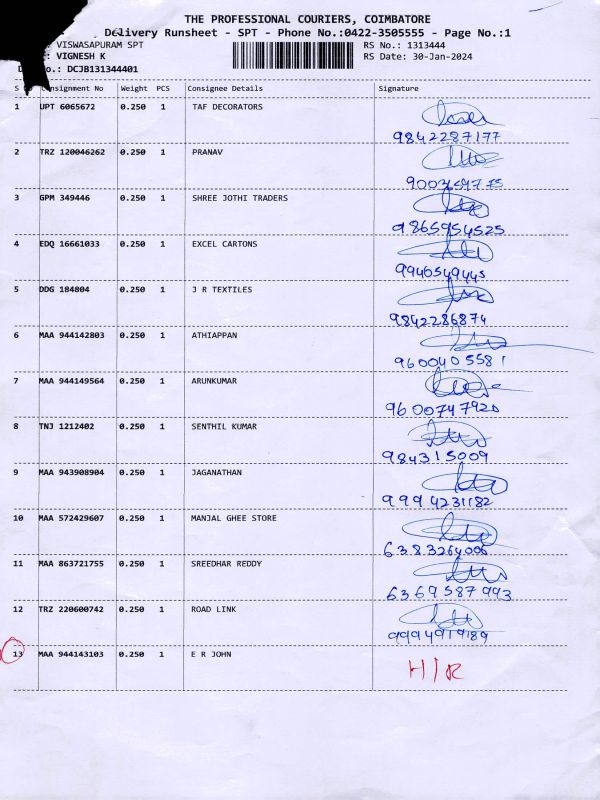 THE PROFESSIONAL COURIERS, COIMBATORE
Delivery Runsheet - SPT - Phone No.:0422-3505555 - Page No.:1
: VISWASAPURAM SPT RS No.: 1313444
: VIGNESH K RS Date: 30-Jan-2024
No.: DCJB131344401
Consignment No Weight PCS Consignee Details Signature
1 UPT 6065672 0.250 1 TAF DECORATORS
9842287177
2 TRZ 120046262 0.250 1 PRANAV
3 GPM 349446 0.250 1 SHREE JOTHI TRADERS
9865954525
4 EDQ 16661033 0.250 1 EXCEL CARTONS
9940549445
5 DDG 184804 0.250 1 J R TEXTILES
9842286874
6 MAA 944142803 0.250 1 ATHIAPPAN
9600405581
7 MAA 944149564 0.250 1 ARUNKUMAR
9600747920
8 TNJ 1212402 0.250 1 SENTHIL KUMAR
984315009
9 MAA 943908904 0.250 1 JAGANATHAN
9994231182
10 MAA 572429607 0.250 1 MANJAL GHEE STORE
6383264006
11 MAA 863721755 0.250 1 SREEDHAR REDDY
6369587993
12 TRZ 220600742 0.250 1 ROAD LINK
9994919189
13 MAA 944143103 0.250 1 E R JOHN
H/R